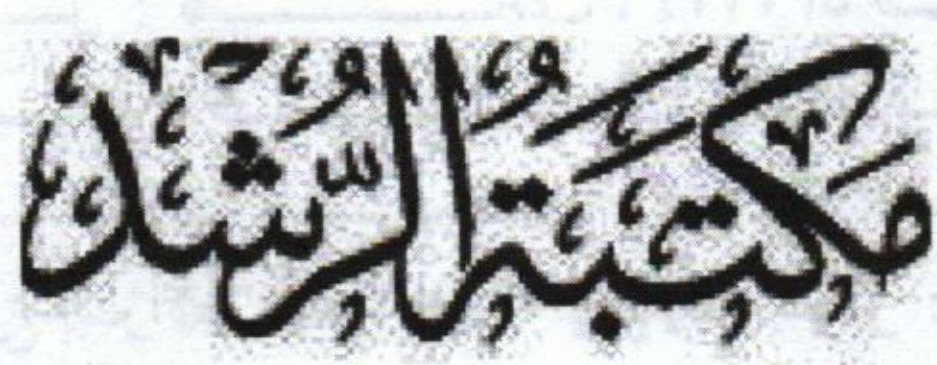 مَكْتَبَةُ الرُّشْد